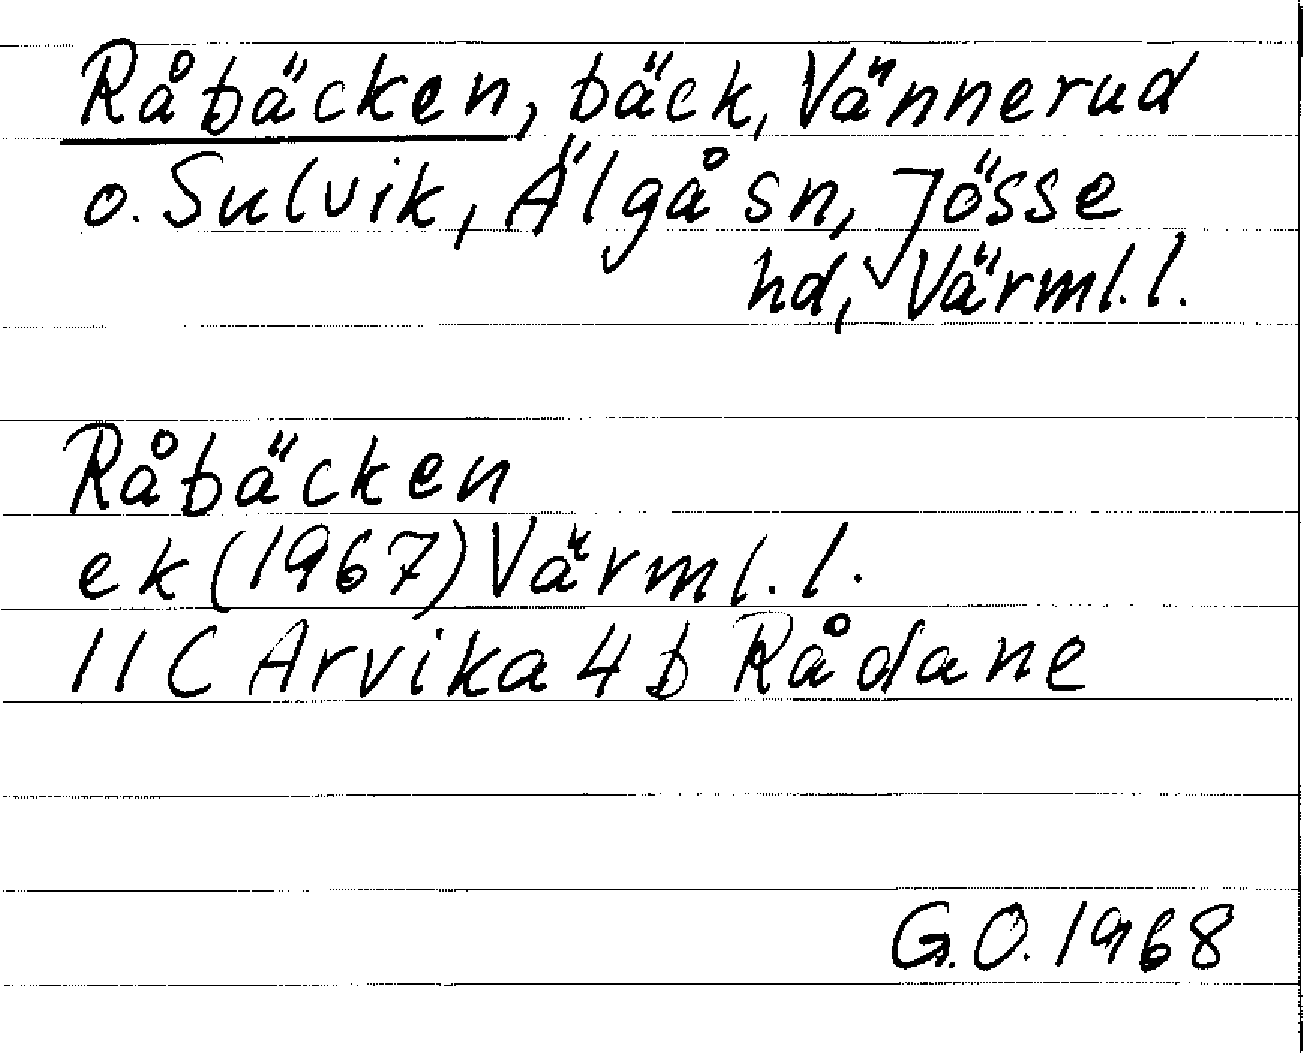 Råbäcken, bäck, Vännerud
o. Sulvik, Älgå sn, Jösse
hd, Värml. l.
Råbäcken
ek (1967) Värml. l.
11 C Arvika 4 b Rådane
G.O. 1968